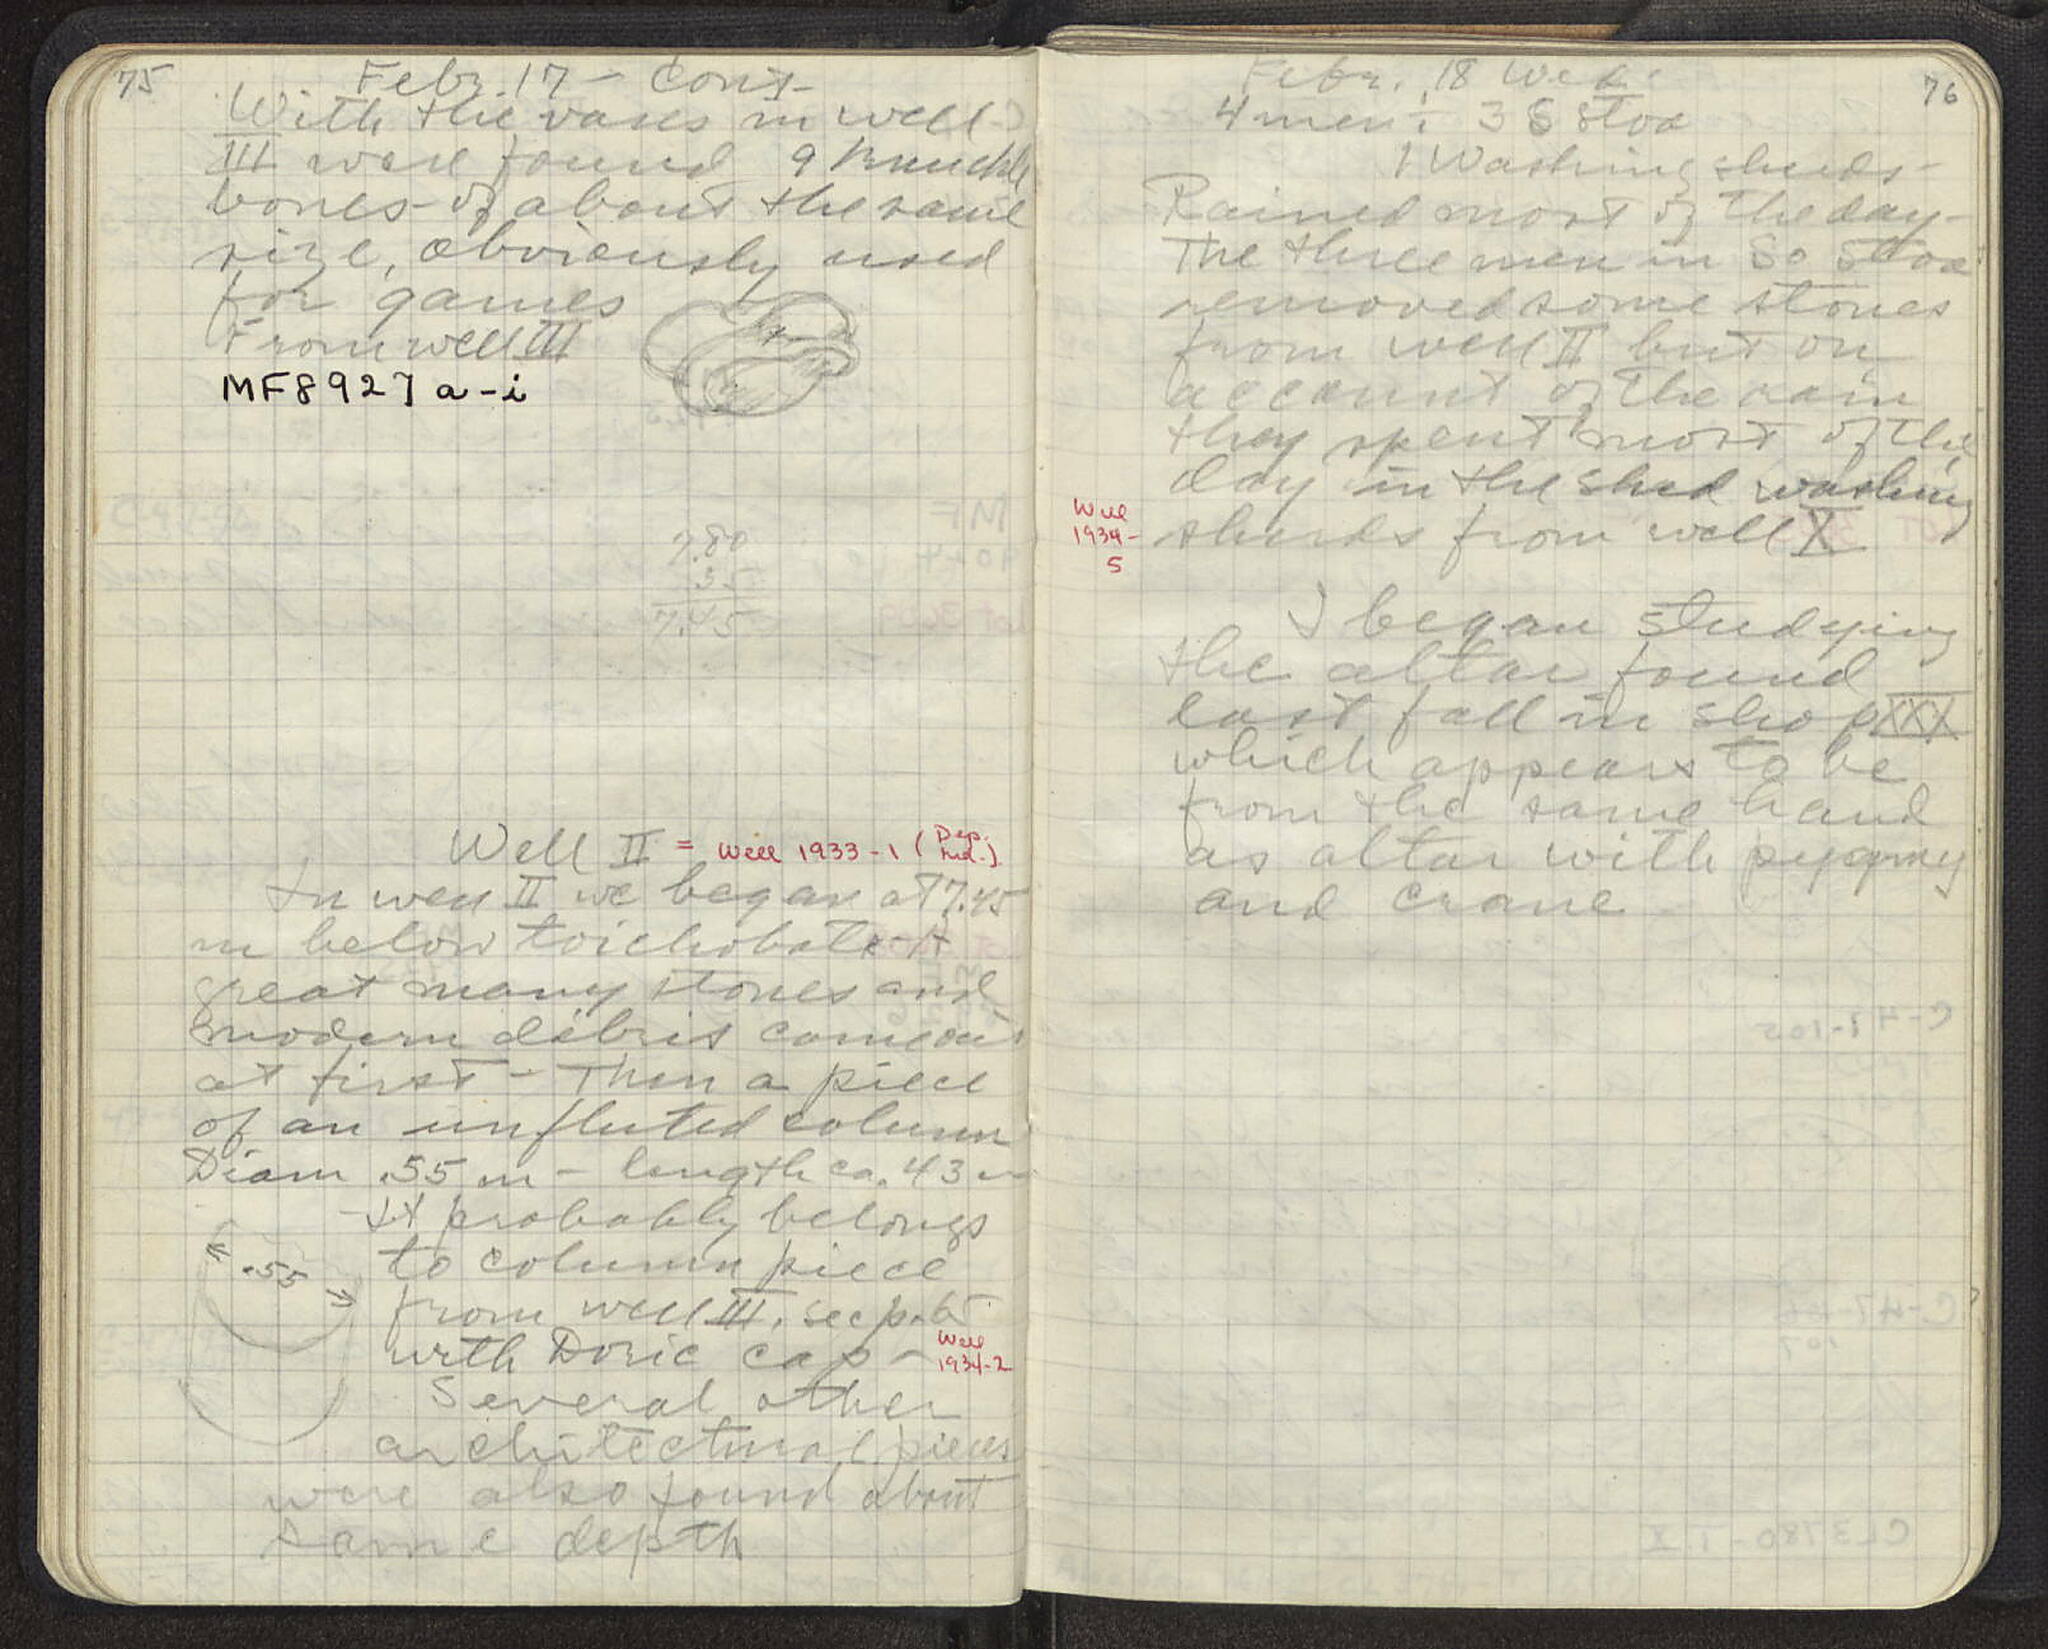 75
Febr. 17 - Cont-
With the vases in well
III were found 9 knuckle
bones - of about the same
size, obviously used
for games
From well III
MF8927 a-i
7.80
35
7.45
Well II = Well 1933-1 (Dep. Ind.)
In well II we began at 7.45
m below toichobate. A
great many stones and
modern débris came out
at first - Then a piece
of an unfluted column
Diam .55 m - length ca. 43 m
It probably belongs
.55
to column piece
from well III, see p. 65
with Doric cap -
Well
1934-2
Several other
architectural pieces
were also found about
same depth
76
Febr. 18 Wed.
4 men: 3 S Stoa
1 Washing sherds -
Rained most of the day -
The three men in So Stoa
removed some stones
from well II but on
account of the rain
they spent most of the
day in the shed washing
sherds from well X
Well
1934-
5
I began studying
the altar found
last fall in shop XXX
which appears to be
from the same hand
as altar with pygmy
and crane